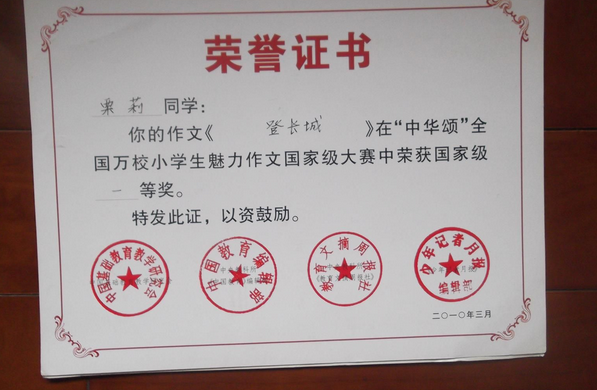 荣誉证书
栗莉 同学:
你的作文《 登长城 》在“中华颂”全
国万校小学生魅力作文国家级大赛中荣获国家级
一 等奖。
特发此证，以资鼓励。
中国基础教育教学研究会
中国教育编辑部
教育文摘周报社
少年记者月报
二〇一〇年三月